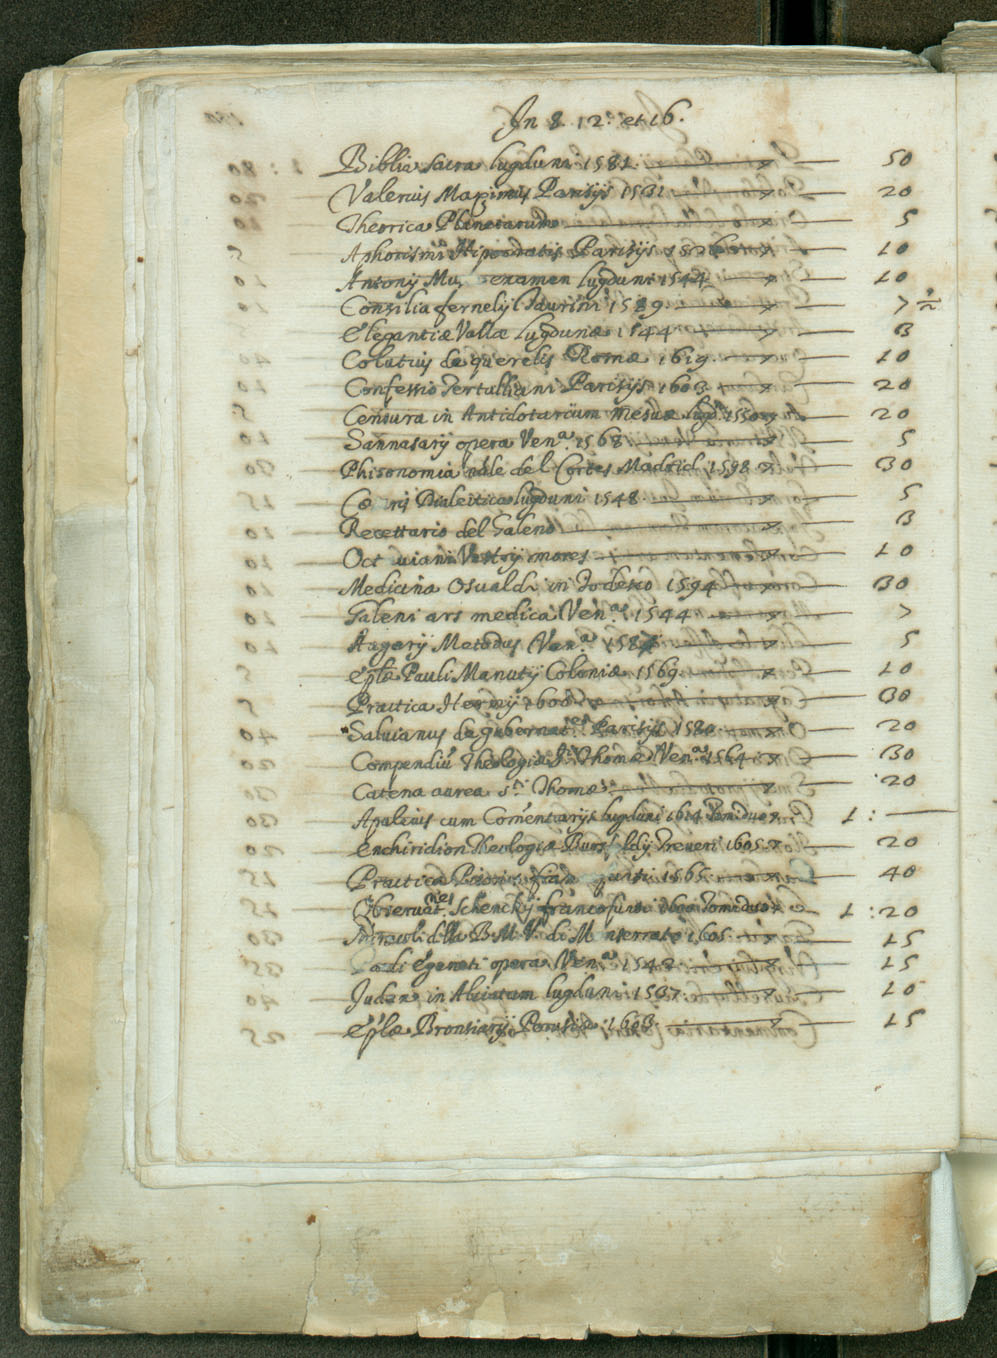 In 8. 12. et 16.
Biblia sacra lugduni 1581. 50
Valerius Maximus Parisijs 1531 20
Theorica Planetarum 5
Aphorismi Hipocratis Parisijs 10
Antonij Mu examen lugduni 1544 10
Consilia fernelij Taurini 1589. 7 ½
Elegantiæ Vallæ Lugdunæ 1544 3
Colutius de querelis Romæ 1619. 10
Confessio Tertulliani Parisijs 1603 20
Censura in Antidotarium Mesuæ lugd. 20
Sannasarij opera Ven.ª 1568 5
Phisonomia del Cortes Madrid 1598 30
rij Dialectica lugduni 1548 5
Recettario del Galeno 3
Oct uiani Vestrij mores 10
Medicina Osualdi in Todesco 1594 30
Galeni ars medica Ven.ª 1544 7
Augerij Metodus Ven.ª 5
Eplæ Pauli Manutij Coloniæ 1569 10
Practica 30
Saluianus de gubernat.ne Parisijs 1580 20
Compendiũ Theologiæ S.ti Thomæ Ven.ª 1564 30
Catena aurea s.ti Thomæ 20
Apuleius cum Comentarijs lugduni 1614 Tom: duo 1 :
Enchiridion Theologiæ Treueri 1605 20
Practica 1565 40
Obseruat.nes Schenckij francofurti 1600 Tomi duo 1 : 20
Miracoli della B. M. V. di M nserrato 1605. 15
Egeneti opera Ven.ª 1542 15
Judæx in Alciatum lugduni 1537 10
Eplæ 15